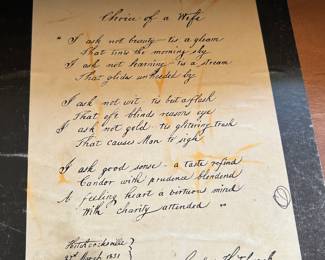 Choice of a Wife
"I ask not beauty - tis a gleam
That tints the morning sky
I ask not learning - tis a stream
That glides unheeded by
I ask not wit tis but a flash
That oft blinds reasons eye
I ask not gold tis glittering trash
That causes Man to sigh
I ask good sense - a taste refind
Candor with prudence blendend
A feeling heart a virtuous mind
With charity attended "
Hitchcocksville
March 1831